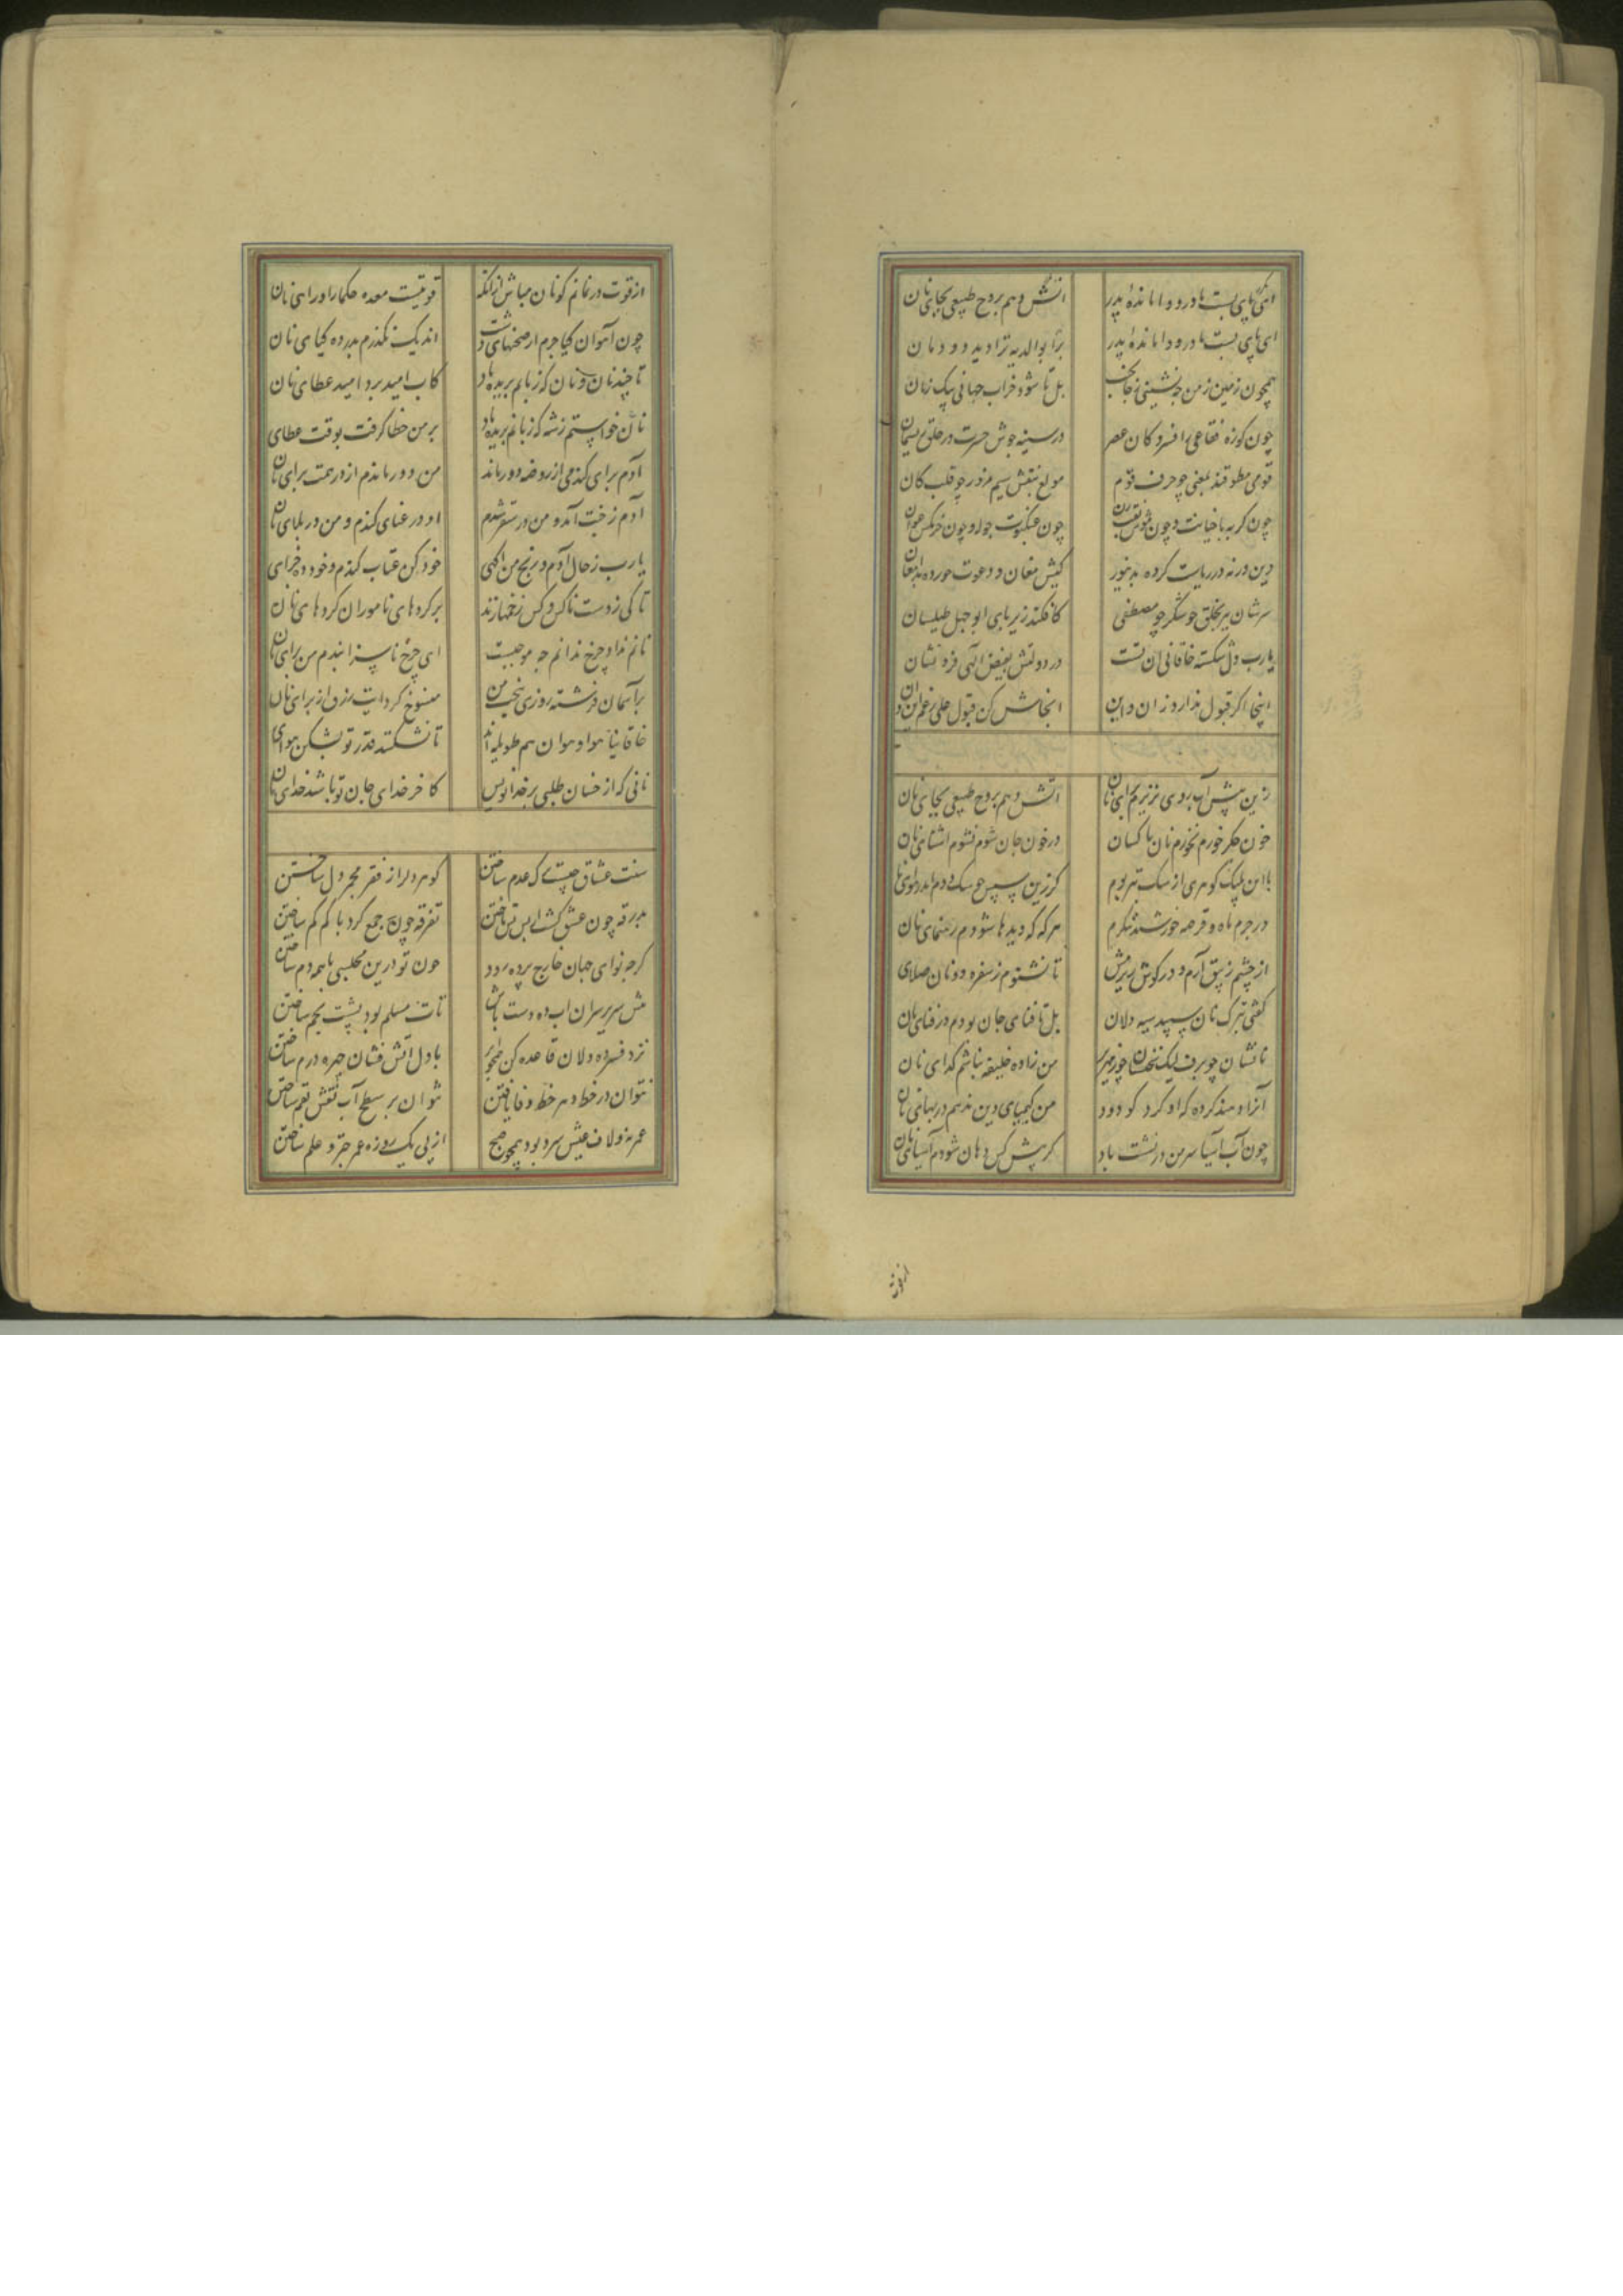 ای پای بست مادر و واماندهٔ پدر
آتش دهم بروح طبیعی بجای نان
ای پای بست مادر و واماندهٔ پدر
برّا بوالدیه ترا دید دودمان
همچون زمین ز من چه نشینی
بل تا شود خراب جهانی بیک زمان
چون کوزه فقاعی افسردکان عصر
در سینه جوش حسرت و در حلق ریسمان
قومی مطوقند بمعنی چو حرف قوم
مولع بنقش سیم مزور چو قلب کان
چون کربه با خیانت و چون موش نقب زن
چون عنکبوت جوله و چون خرمکس عوان
دین ور نه و ریاست کرده بدینور
کیش مغان و دعوت خورده بدامغان
سرشان ببر بحلق چو مصطفی
کافکند زیر پای ابوجهل طیلسان
یارب دل شکسته خاقانی آن تست
در دولتش بفیض الهی فرو نشان
اینجا اکر قبول ندارد از آن و این
آنجاش کن قبول علی رغم این و آن
زین پیش آب روی نریزم برای نان
آتش دهم بروح طبیعی بجای نان
خون جکر خورم نخورم نان ناکسان
در خون جان شوم نشوم آشنای نان
با این پلنک کوهری از سک بتر بوم
کر زین سپس چو سک دوم اندر قفای نان
در جرم ماه و قرصه خورشید ننکرم
هرکه که دیدها شودم رهنمای نان
از چشم زیبق آرم و در کوش ریزمش
تا نشنوم ز سفره دونان صلای نان
کفتی بترک نان سپید سیه دلان
بل تا فنای جان بودم در فنای نان
نانشان چو برف لیک سخنشان چو زمهریر
من زاده خلیفه نباشم کدای نان
آنرا دهند کرده که او کرد کو دود
من کیمیای دین ندهم در بهای نان
چون آب آسیا سر من در نشیب باد
کر پیش کس دهان شودم آسیای نان
از قوت
از قوت در نمانم کو نان مباش از آنکه
قوتیست معده حکما را ورای نان
چون آهوان کیا چرم از صحنهای دشت
اندیک نکذرم بدر ده کیای نان
تا چند نان و نان که زبانم بریده باد
کاب امید برد امید عطای نان
نان خواستم ز شه که زبانم بریده باد
بر من خطا کرفت بوقت عطای
آدم برای کندمی از روضه دور ماند
من دور ماندم از در همت برای نان
آدم ز جنت آمد و من در سقر شدم
او در عنای کندم و من در بلای نان
یارب ز حال آدم و رنج من آکهی
خود کن عتاب کندم و خود ده جزای
تا کی ز دست ناکس و کس زخمها زند
بر کردهای ناموران کردهای نان
نانم نداد چرخ ندانم چه موجبست
ای چرخ ناسزا نبدم من سزای نان
بر آسمان فرشته روزی ببخت من
منسوخ کرد آیت رزق از برای نان
خاقانیا هوا و هوان هم طویله اند
تا نشکند قدر تو بشکن هوای
نانی که از خسان طلبی بر خدا نویس
کاخر خدای جان تو باشد خدای نان
سنت عشاق چیست برک عدم ساختن
کوهر دل را ز فقر مجمر دل ساختن
بدرقه چون عشق کشت از پس پس تاختن
تفرقه چون جمع کرد با کم کم ساختن
کرچه نوای جهان خارج پرده رود
چون تو درین مجلسی با همه دم ساختن
پیش سریر سران آب ده دست باش
تات مسلم بود پشت بخم ساختن
نزد فسرده دلان قاعده کن همچو ابر
با دل آتش فشان چهره درم ساختن
نتوان در خط دهر خط وفا یافتن
نتوان بر سطح آب نقش قلم ساختن
عمر نه و لاف عیش سرد بود همچو صبح
از پی یک روزه عمر چتر و علم ساختن